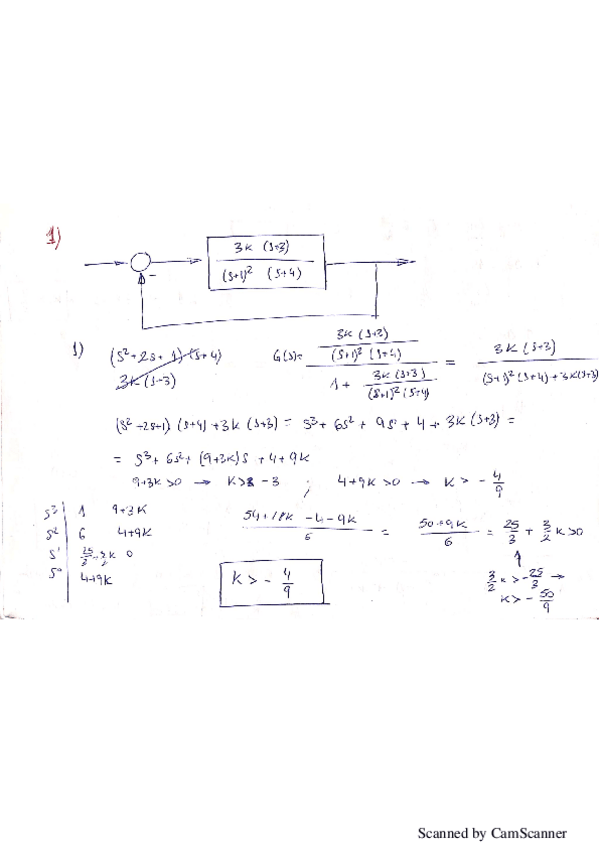 1)
3K (s+3)
(s+1)² (s+4)
-
1) (s²+2s+1)(s+4)
3K(s+3)
G(s) = (3K(s+3) / (s+1)²(s+4)) / (1 + 3K(s+3) / (s+1)²(s+4)) = 3K(s+3) / ((s+1)²(s+4)+3K(s+3))
(s²+2s+1)(s+4)+3K(s+3) = s³+6s²+9s+4+3K(s+3) =
= s³+6s²+(9+3K)s+4+9K
9+3K>0 → K>-3 ; 4+9K>0 → K > -4/9
s³ | 1 9+3K
s² | 6 4+9K
s¹ | 25/3+3/2K 0
s⁰ | 4+9K
(54+18K-4-9K)/6 = (50+9K)/6 = 25/3 + 3/2 K>0
3/2 K > -25/3 →
K > -50/9
K > -4/9
Scanned by CamScanner